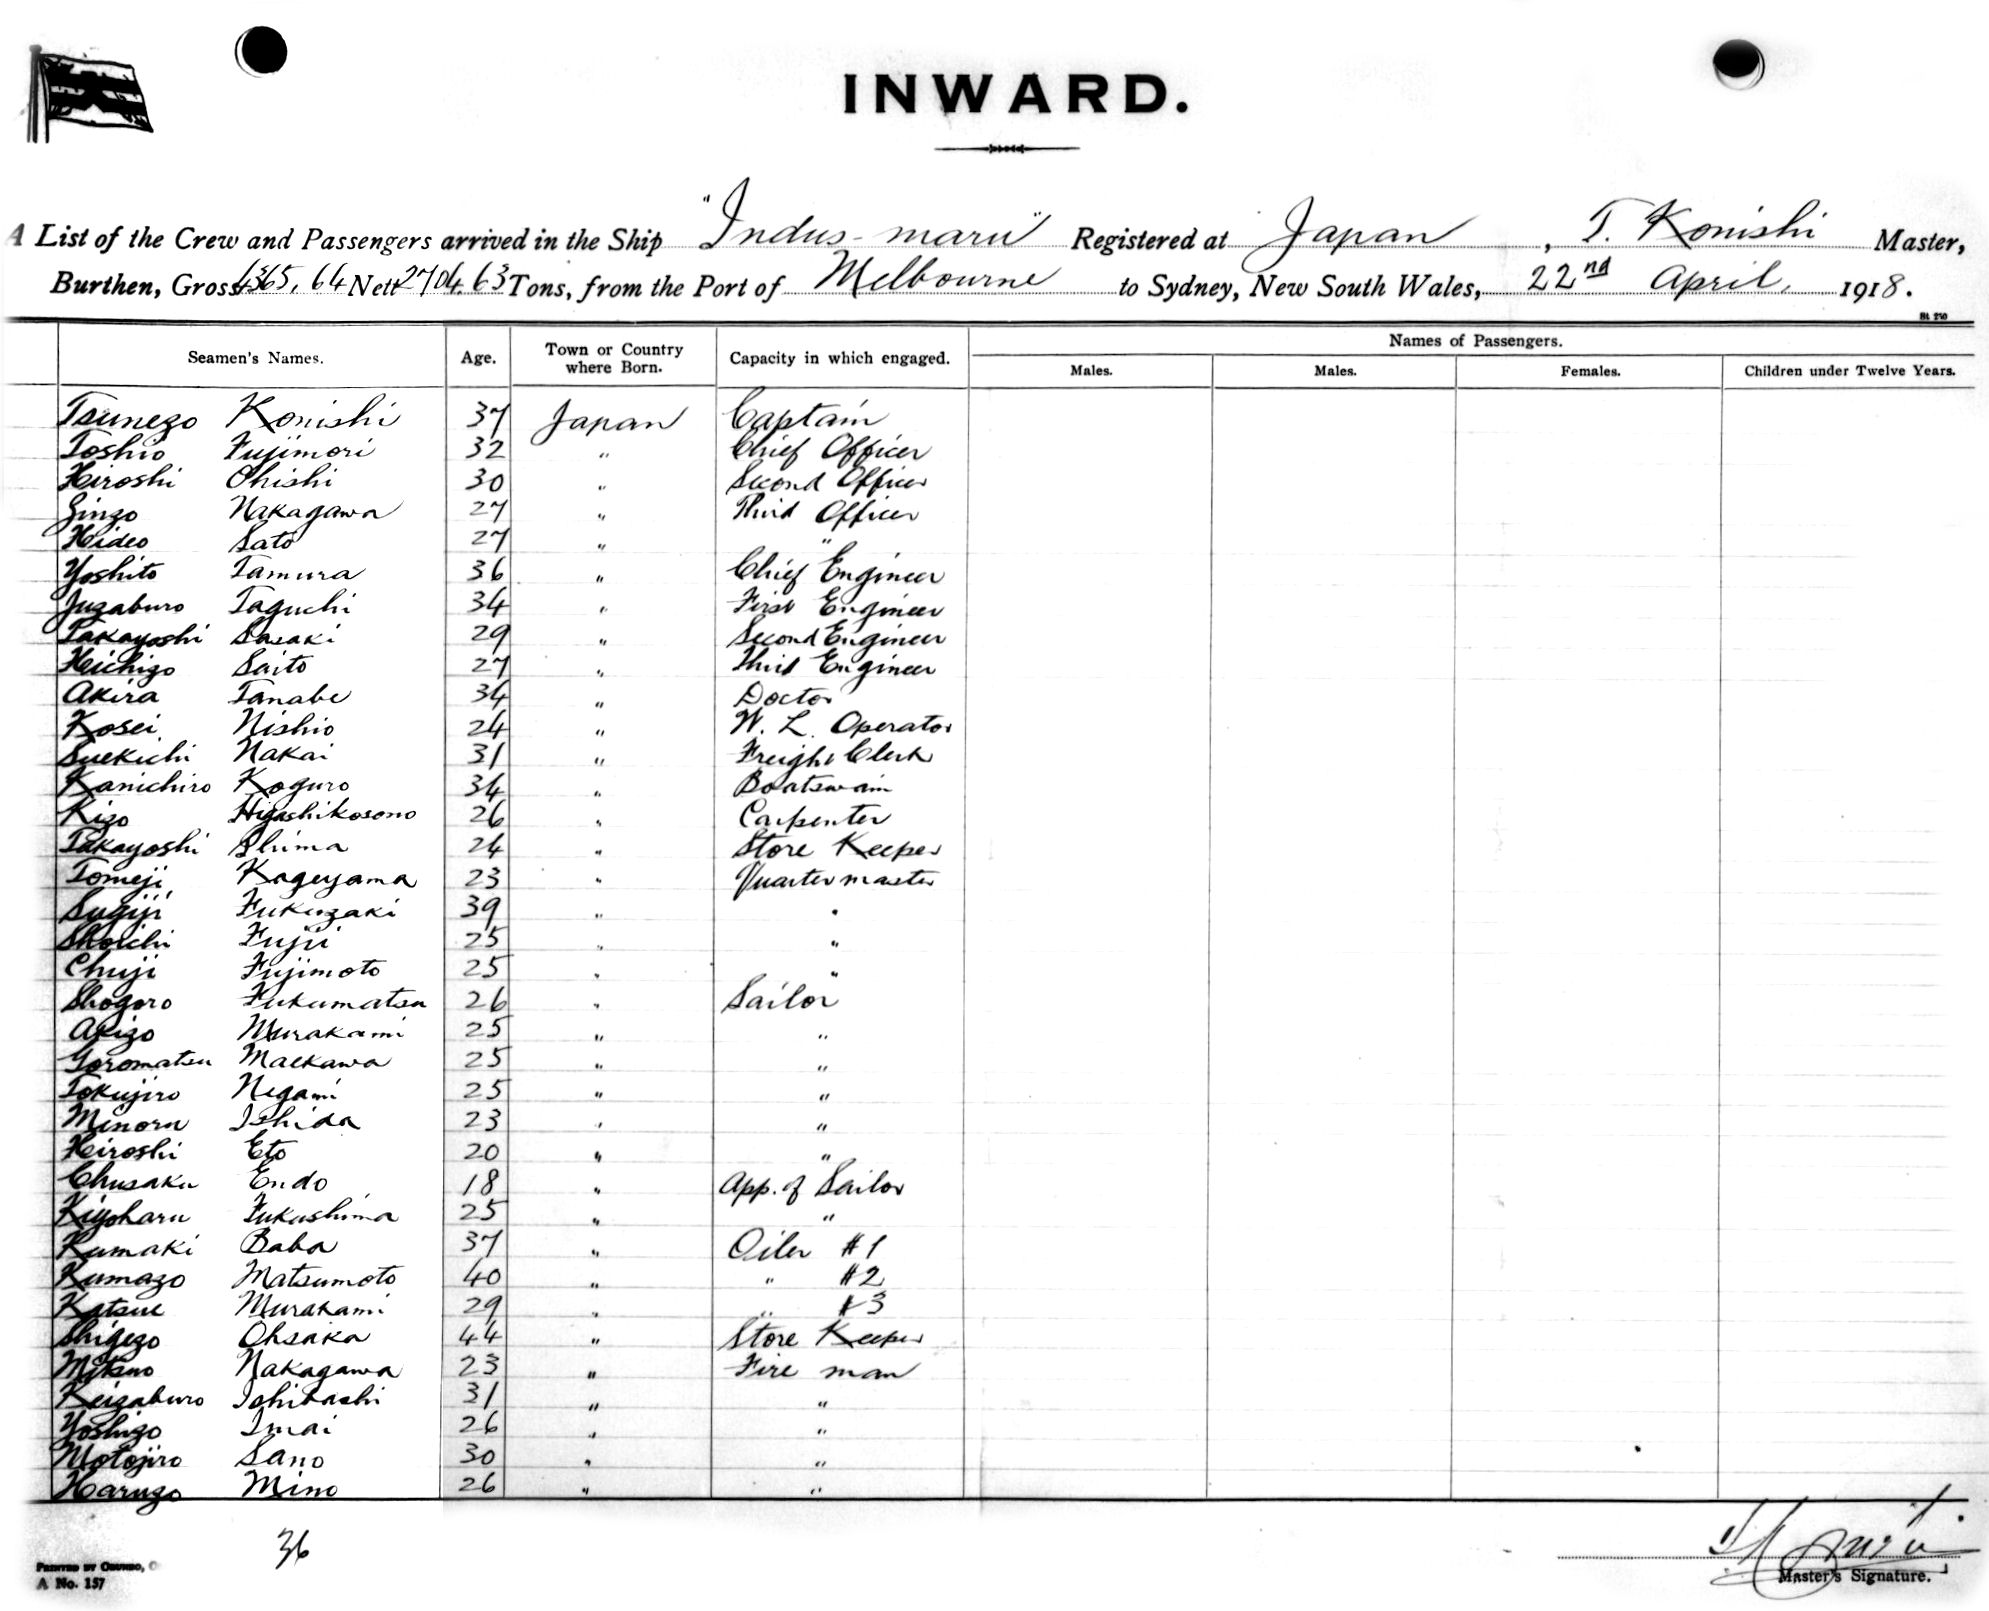 INWARD.
A List of the Crew and Passengers arrived in the Ship "Indus-maru" Registered at Japan, T. Konishi Master,
Burthen, Gross 4365.64 Nett 2704.63 Tons, from the Port of Melbourne to Sydney, New South Wales, 22nd April, 1918.
St 210
Names of Passengers.
Seamen's Names. Age. Town or Country where Born. Capacity in which engaged. Males. Males. Females. Children under Twelve Years.
Tsunezo Konishi 37 Japan Captain
Toshio Fujimori 32 " Chief Officer
Hiroshi Ohishi 30 " Second Officer
Ginzo Nakagawa 27 " Third Officer
Hideo Sato 27 " "
Yoshito Tamura 36 " Chief Engineer
Juzaburo Taguchi 34 " First Engineer
Takayoshi Sasaki 29 " Second Engineer
Heichizo Saito 27 " Third Engineer
Akira Tanabe 34 " Doctor
Kosei Nishio 24 " W. L. Operator
Suekichi Nakai 31 " Freight Clerk
Kanichiro Koguro 34 " Boatswain
Kizo Higashikosono 26 " Carpenter
Takayoshi Shima 24 " Store Keeper
Tomeji Kageyama 23 " Quartermaster
Sugiji Fukuzaki 39 " "
Shoichi Fujii 25 " "
Chuji Fujimoto 25 " "
Shogoro Fukumatsu 26 " Sailor
Akizo Murakami 25 " "
Goromatsu Maekawa 25 " "
Tokujiro Negami 25 " "
Minoru Ishida 23 " "
Hiroshi Eto 20 " "
Chusaku Endo 18 " App. of Sailor
Kiyoharu Fukushima 25 " "
Kumaki Baba 37 " Oiler #1
Kumazo Matsumoto 40 " " #2
Katsue Murakami 29 " " #3
Shigezo Ohsaka 44 " Store Keeper
Mitsuo Nakagawa 23 " Fire man
Keizaburo Ishibashi 31 " "
Yoshizo Imai 26 " "
Motojiro Sano 30 " "
Haruzo Mino 26 " "
36
Master's Signature.
PRINTED BY
A No. 157